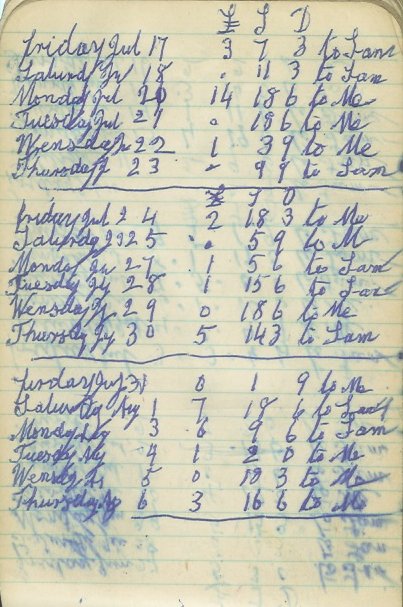 £ S D
Friday Jul 17 3 7 3 to Sam
Saturd Jul 18 . 11 3 to Sam
Monday Jul 20 14 18 6 to Me
Tuesday Jul 21 . 19 6 to Me
Wensday Ju 22 1 3 9 to Me
Thursday Jl 23 . 9 9 to Sam
£ S D
Friday Jul 2 4 2 18 3 to Me
Saturday Jl 25 . 5 9 to M
Monday Ju 27 1 5 6 to Sam
Tuesday Jy 28 1 15 6 to Sam
Wensday Jy 29 0 18 6 to Me
Thursday Jy 30 5 14 3 to Sam
Jul 31 0 1 9 to Me
Saturday Aug 1 7 18 6 to Sam
Monday Aug 3 6 9 6 to Sam
Tuesday Ag 4 1 2 0 to Me
Wensdy 5 0 18 3 to Me
Thursday Ag 6 3 16 6 to Me